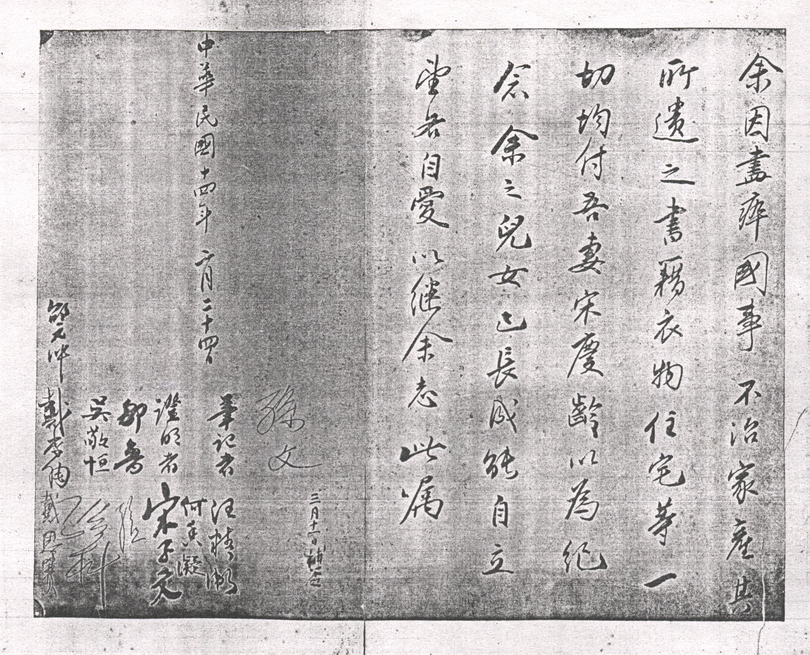 余因盡瘁國事不治家產其
所遺之書籍衣物住宅等一
切均付吾妻宋慶齡以為紀
念余之兒女已長成能自立
望各自愛以继余志此嘱
孫文
三月十一日補簽
中華民國十四年二月二十四日
筆記者 汪精衛
何香凝
證明者 宋子文
鄒魯
吳敬恒
孫科
戴季陶 戴恩賽
邵元冲